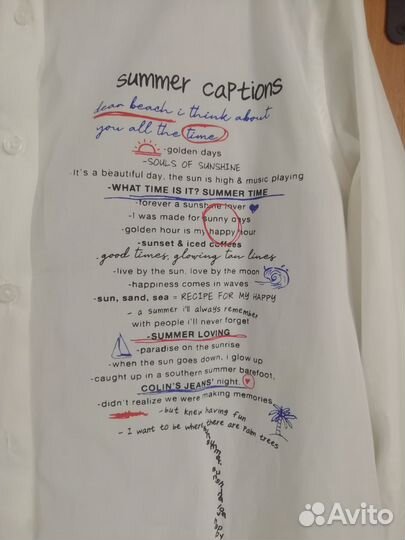 summer captions
dear beach i think about
you all the time
-golden days
-SOULS OF SUNSHINE
-It's a beautiful day, the sun is high & music playing
-WHAT TIME IS IT? SUMMER TIME
-forever a sunshine lover
-I was made for sunny days
-golden hour is my happy hour
-sunset & iced coffees
-good times, glowing tan lines
-live by the sun, love by the moon
-happiness comes in waves
-sun, sand, sea = RECIPE FOR MY HAPPY
- a summer i'll always remember
with people i'll never forget
-SUMMER LOVING
-paradise on the sunrise
-when the sun goes down, i glow up
-caught up in a southern summer barefoot,
COLIN'S JEANS' night.
-didn't realize we were making memories
-but knew having fun
- I want to be where there are palm trees
Avito